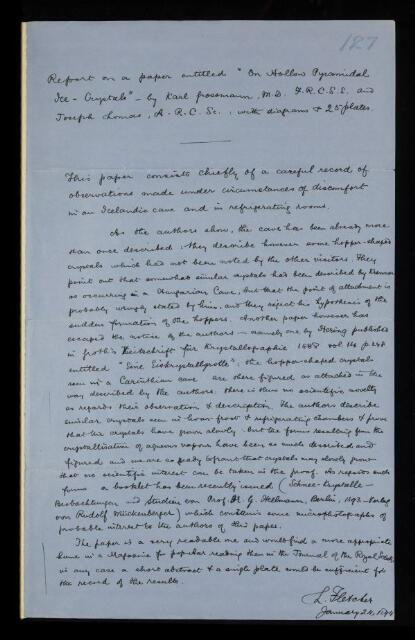 127
Report on a paper entitled "On Hollow Pyramidal
Ice-Crystals" - by Karl Grossmann, M.D. F.R.C.S.E. and
Joseph Lomas, A.R.C.Sc., with diagrams & 25 plates.
This paper consists chiefly of a careful record of
observations made under circumstances of discomfort
in an Icelandic cave and in refrigerating rooms.
As the authors show, the cave has been already more
than once described: they describe however some hopper-shaped
crystals which had not been noted by the other visitors. They
point out that somewhat similar crystals had been described by
as occurring in a Hungarian Cave, but that the point of attachment is
probably wrongly stated by him, and they reject his hypothesis of the
sudden formation of the hoppers. Another paper however has
escaped the notice of the authors - namely one by published
in Groth's Zeitschrift für Krystallographie 1888 vol 14 p
entitled "Eine Eiskrystallgrotte"; the hopper-shaped crystals
seen in a Carinthian cave are there figured as attached in the
way described by the authors: there is thus no scientific novelty
as regards their observation & description. The authors describe
similar crystals seen in hoar-frost & refrigerating chambers & prove
that the crystals have grown slowly: but the forms resulting from the
crystallisation of aqueous vapour have been so much described and
figured and we are so ready to grant that crystals may slowly grow
that no scientific interest can be taken in the proof. As regards such
forms a booklet has been recently issued (Schnee-Krystalle-
Beobachtungen und Studien von Prof. Dr. G. Hellmann, Berlin, 1893 - Verlag
von Rudolf Mückenberger) which contains some microphotographs of
probable interest to the authors of this paper.
The paper is a very readable one and would find a more appropriate
home in a Magazine for popular reading than in the Journal of the Royal Society
in any case a short abstract & a single plate would be sufficient for
the record of the results.
L. Fletcher
January 24, 1894